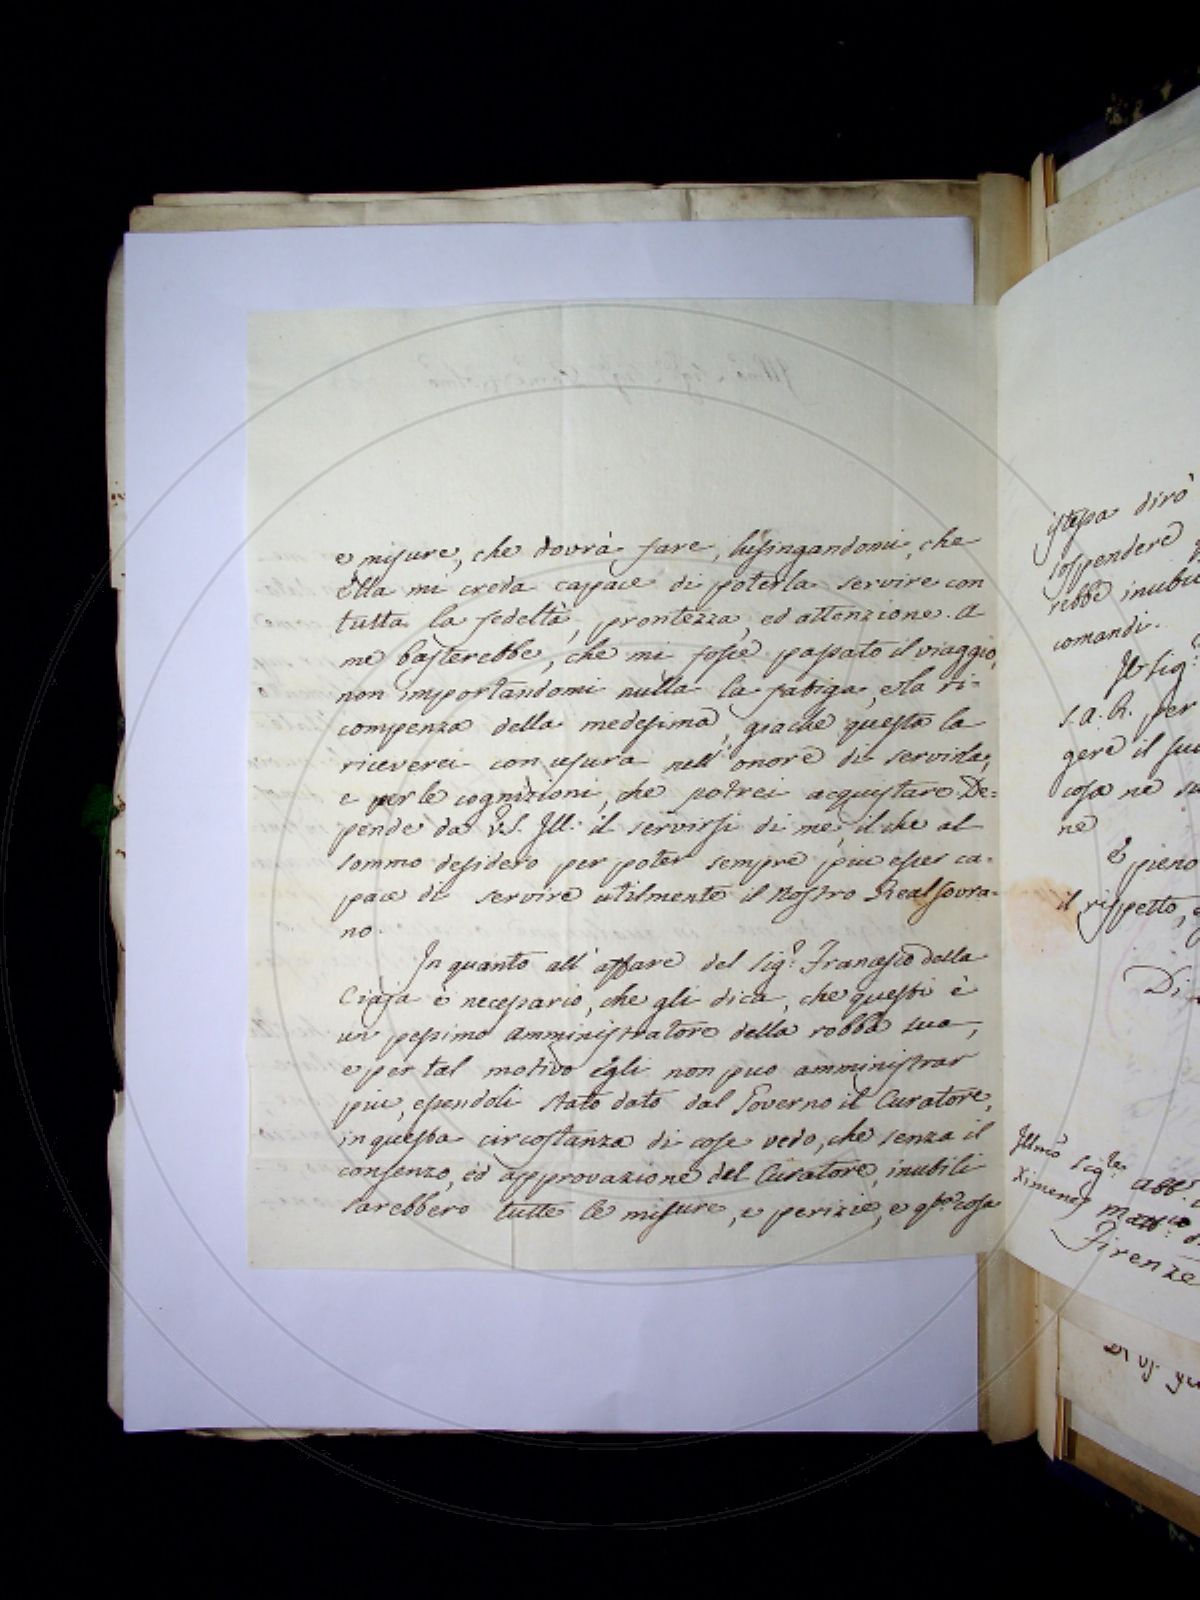 e misure, che dovrà fare, lusingandomi, che
Ella mi creda capace di poterla servire con
tutta la fedeltà, prontezza, ed attenzione. A
me basterebbe, che mi fosse passato il viaggio,
non importandomi nulla la fatiga, e la ri=
compenza della medesima, giache questa la
riceverei con usura nell' onore di servirla,
e per le cognizioni, che potrei acquistare. De=
pende da V.S. Ill: il servirsi di me, il che al
sommo desidero per poter sempre piu esser ca=
pace di servire utilmente il Nostro Real Sovra=
no.
In quanto all' affare del Sig.e Francesco della
Ciaja è necessario, che gli dica, che questi è
un pessimo Amministratore della robba sua,
e per tal motivo Egli non puo amministrar
piu, essendoli stato dato dal Governo il Curatore,
in questa circostanza di cose vedo, che senza il
consenzo, ed approvazione del Curatore, inutili
sarebbero tutte le misure, e perizie, e q.sta cosa
istessa dirò
sospendere
rebbe inutil
comandi.
Il Sig.
S.A.R. per
gere il su
cosa ne
ne
E pieno
il rispetto, e
Di
Illmo Sig.re Abb.e
Ximenes Matt.co d
Firenze
Di VS. Ill